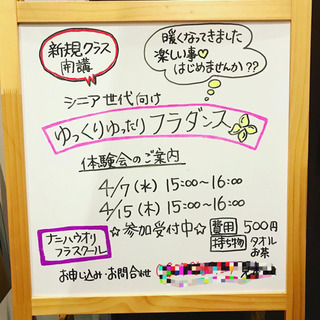 新規クラス
開講
暖くなってきました
楽しい事♡
はじめませんか??
シニア世代向け
ゆっくりゆったりフラダンス
体験会のご案内
4/7(水) 15:00~16:00
4/15(木) 15:00~16:00
☆参加受付中☆
費用 500円
持ち物 タオル
お茶
ナニハウオリ
フラスクール
お申し込み・お問合わせ